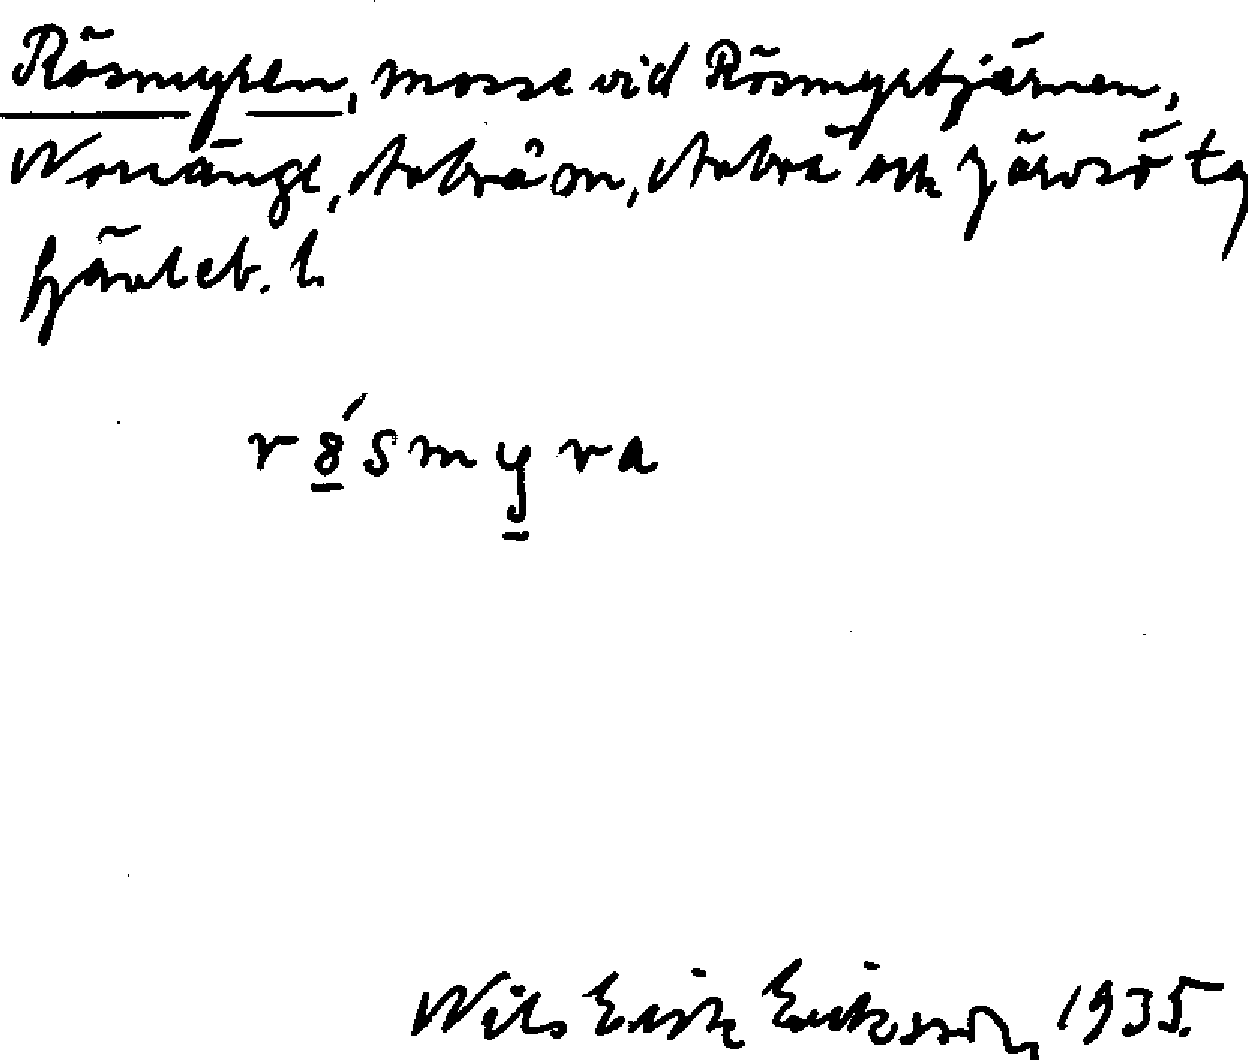 Rösmyren, mosse vid Rösmyrtjärnen,
Norränge, Arbrå sn, Arbrå och Järvsö tg
Gävleb. l.
rösmyra
Nils Erik Eriksson 1935.